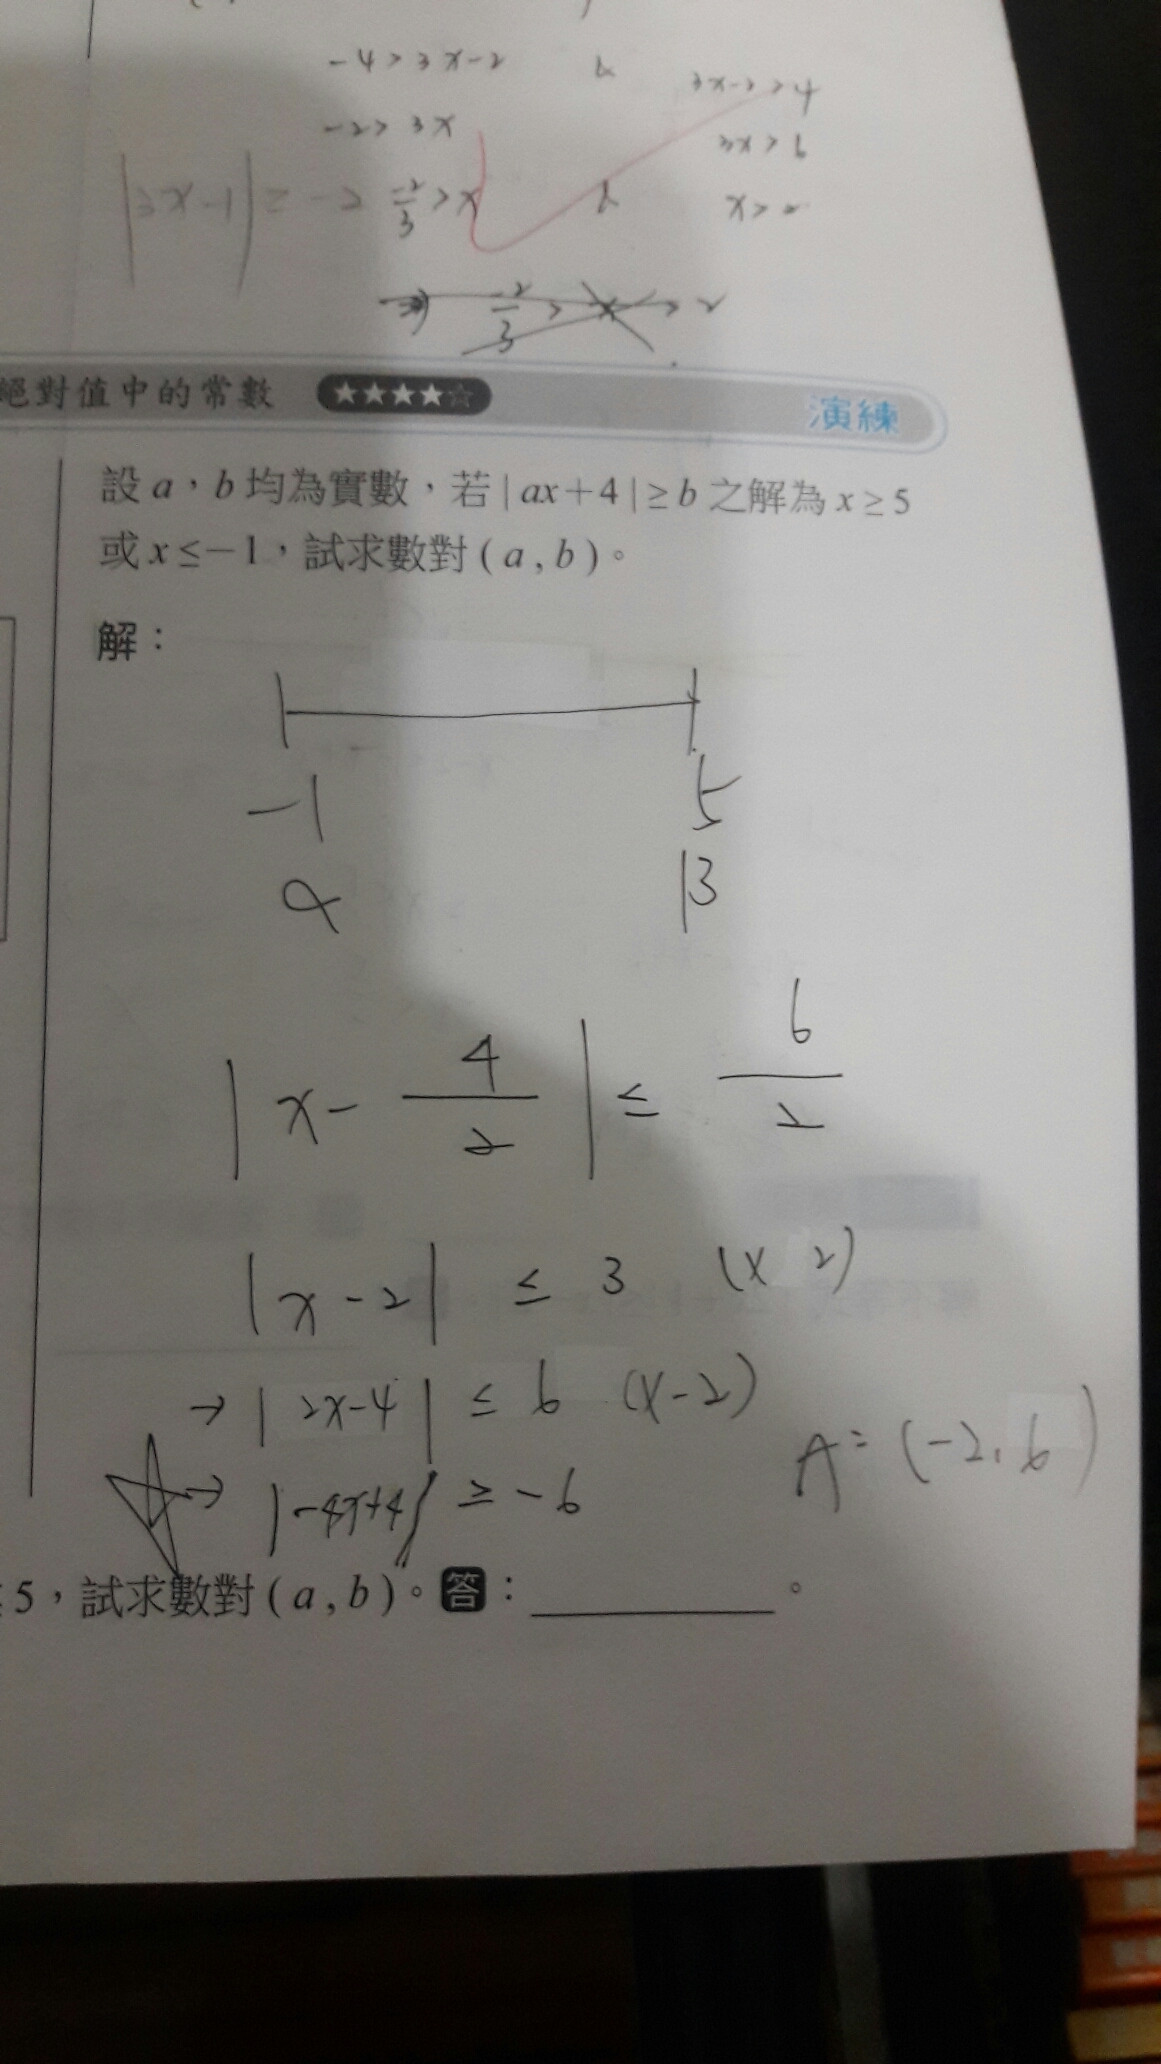 -4 > 3x-2
3x-2 > 4
-2 > 3x
3x > 6
|3x-1| ≥ -2
-2/3 > x
x > 2
⇒ -2/3 > x > 2
絕對值中的常數 ★★★★☆ 演練
設 a，b 均為實數，若 | ax+4 | ≥ b 之解為 x ≥ 5
或 x ≤ -1，試求數對 ( a , b )。
解：
-1 5
α β
| x - 4/2 | ≤ 6/2
| x - 2 | ≤ 3 (x 2)
→ | 2x-4 | ≤ 6 (x-2)
→ |-4x+4| ≥ -6
A = (-2, 6)
5，試求數對 ( a , b )。答：________。